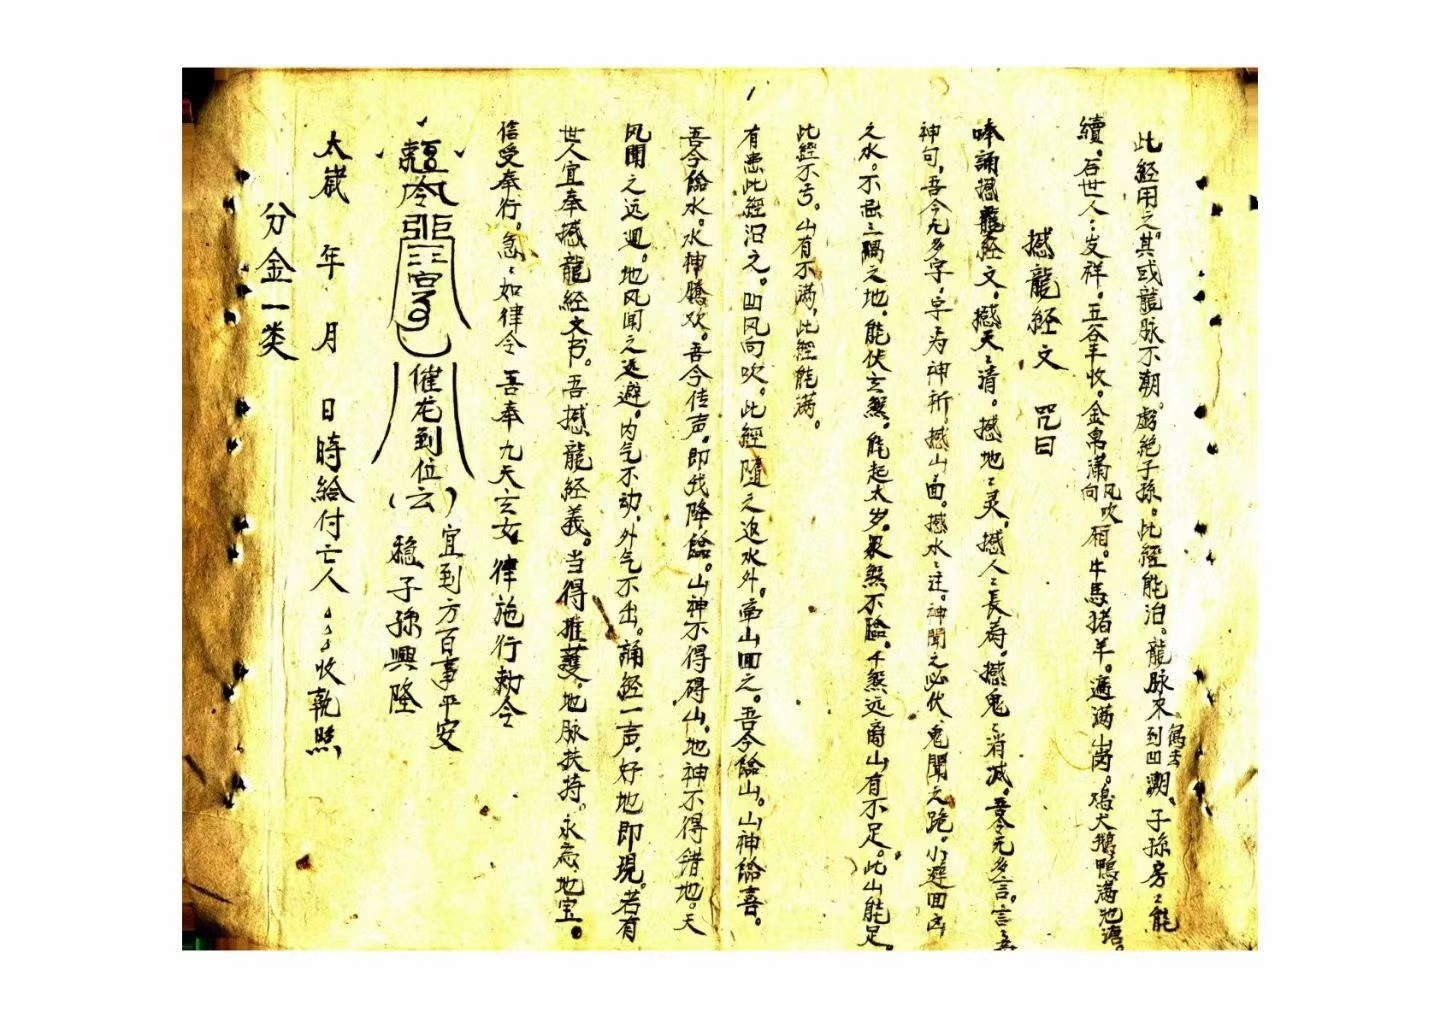 此經用之。其或龍脉不朝。虧絶子孫。此經能泊。龍脉來到凹潮、子孫房〻能
續。右世人〻发祥。五谷丰收。金帛满廂。牛馬猪羊。滿山崗。鸡犬鵝鴨满池塘。
风吹
向
撼龍經文 咒曰
唪誦撼龍經文。撼天〻清。撼地〻灵。撼人〻長寿。撼鬼〻消减。吾今元多言。言
神句。吾今元多字。字〻为神祈。撼山〻面。撼水〻迁。神聞之必伏、鬼聞之跪。小避回
之水。不忌〻禍之地。能伏玄煞。能起太岁。煞不臨。千煞远离山有不足。此山能足。
此經不亏。山有不满，此經能满。
有患此經泊之。凹风向吹。此經隨之返水外。山回之。吾今給山。山神給喜。
吾今給水。水神騰欢。吾今传声。即我降臨。山神不得碍山。地神不得錯地。天
风聞之远迴。地风聞之远避。内气不动，外气不出。誦經一声，好地即現。若有
世人宜奉撼龍經文书。吾撼龍經義。当得推護。地脉扶持。永為地宝。
信受奉行。急〻如律令 吾奉九天玄女 律施行勅令
催龙到位
（云）
宜到方百事平安
稳子孫興隆
太歲 年 月 日時給付亡人〻〻〻收執照
分金一类